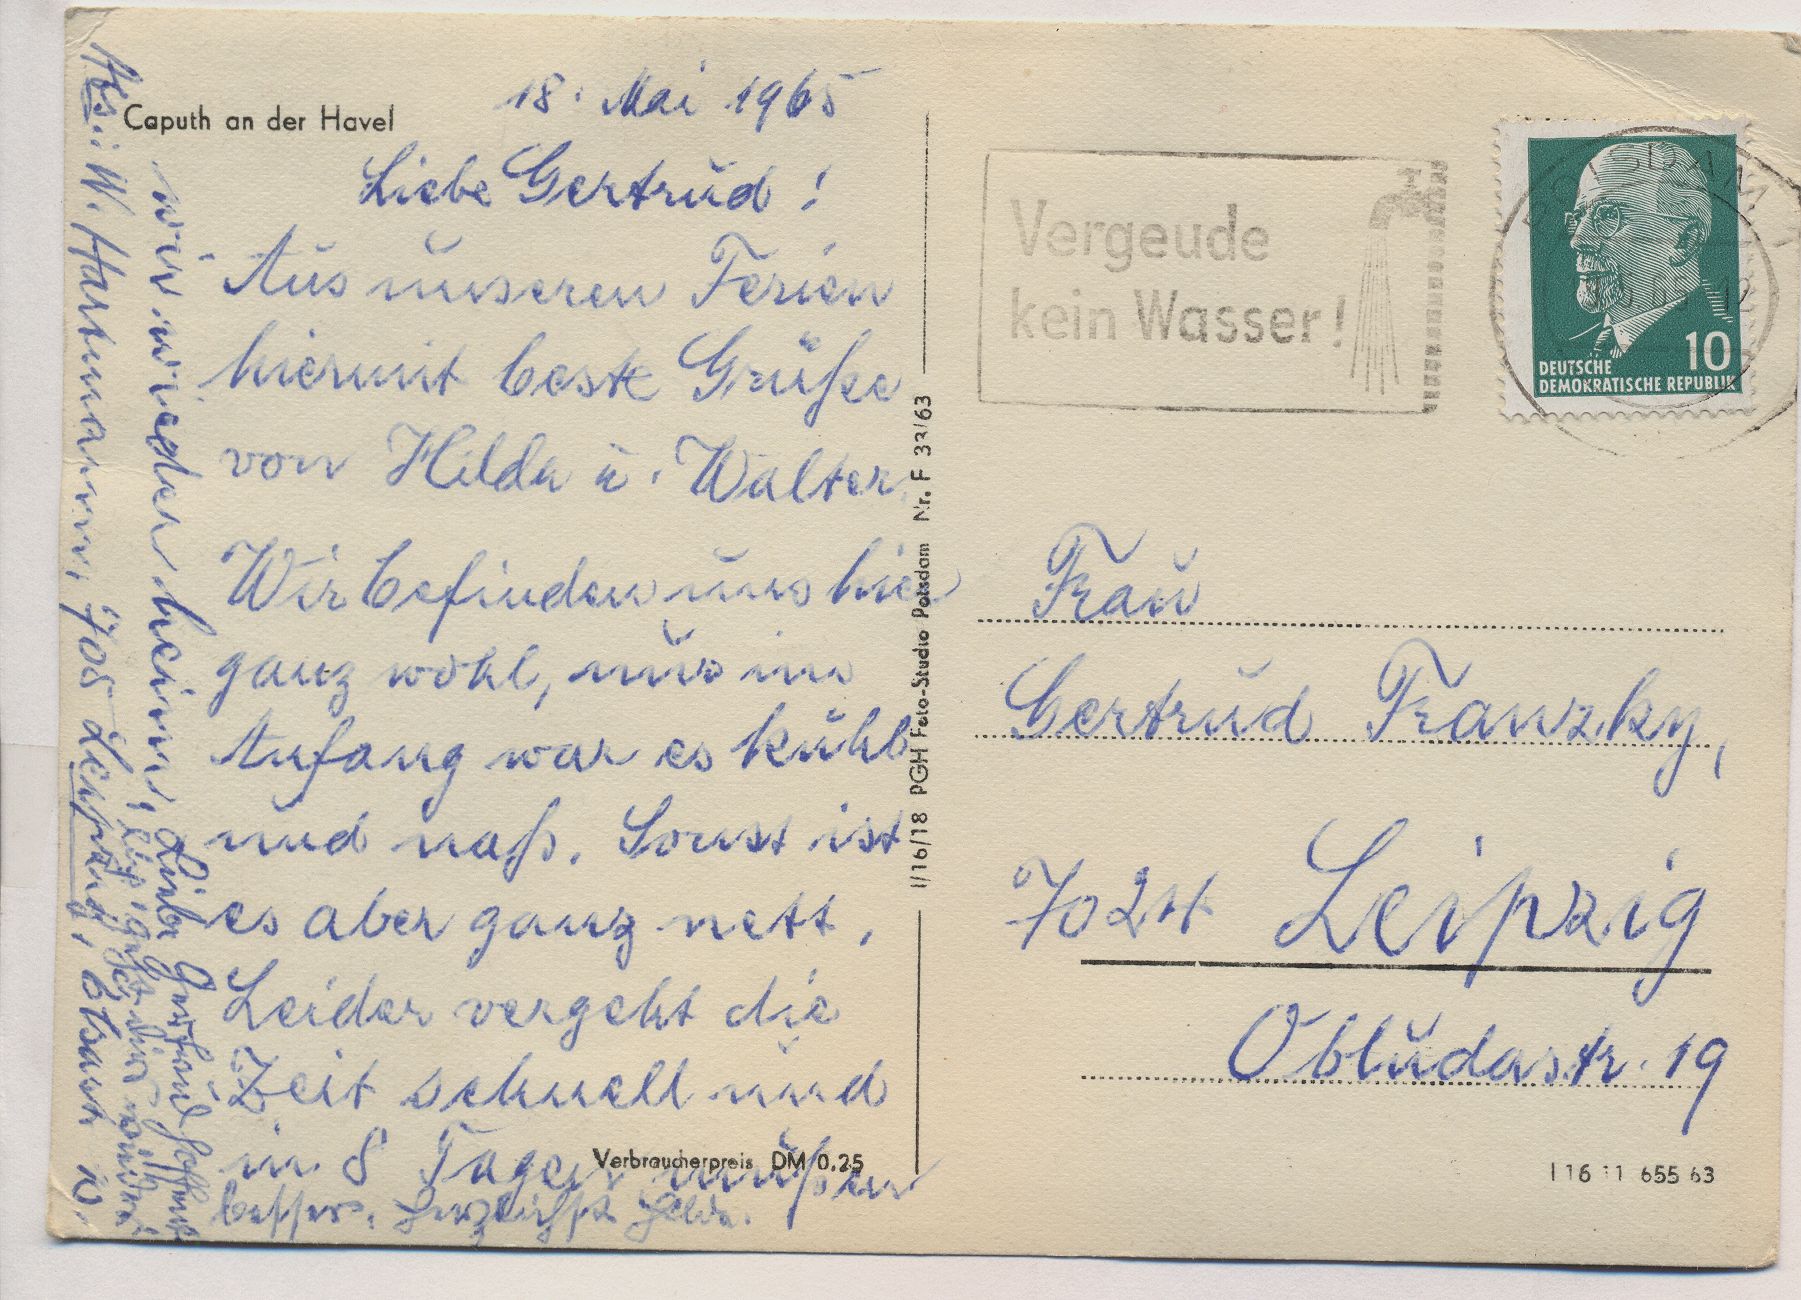 Caputh an der Havel
18. Mai 1965
Liebe Gertrud!
Aus unseren Ferien
hiermit beste Grüße
von Hilda u. Walter.
Wir befinden uns hier
ganz wohl, nur im
Anfang war es kühl
und naß. Sonst ist
es aber ganz nett.
Leider vergeht die
Zeit schnell und
in 8 Tagen müßen
wir wieder heim.
Liebe Gertrud hoffentl.
geht es dir wieder
besser. Herzlichst Hilda.
Abs.: W. Hartmann, 705 Leipzig,
Verbraucherpreis DM 0.25
I/16/18 PGH Foto-Studio Potsdam Nr. F 33/63
Vergeude
kein Wasser!
POTSDAM
10
DEUTSCHE
DEMOKRATISCHE REPUBLIK
Frau
Gertrud Franzky,
7024 Leipzig
Obludastr. 19
I 16 11 655 63